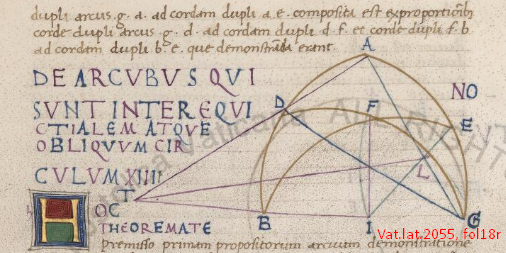 dupli arcus. g. a. ad cordam dupli a. e. composita est ex proportionibus
corde dupli arcus. g. d. ad cordam dupli d. f. et corde dupli. f. b.
ad cordam dupli b. e. que demonstranda erant.
DE ARCVBVS QVI
SVNT INTER EQVI NO
CTIALEM ATQVE
OBLIQVVM CIR
CVLVM XIIII
HOC
THEOREMATE
premisso primam propositorum arcuum demonstratione
A
D
F
E
T
L
B
I
G
Vat.lat.2055, fol18r